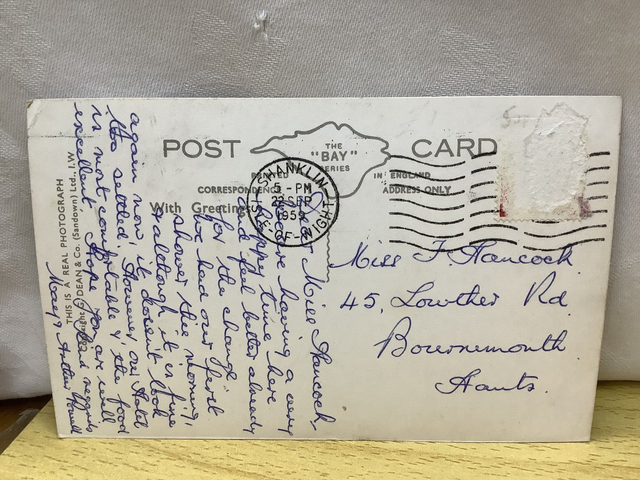 POST CARD
THE
"BAY"
SERIES
PRINTED IN ENGLAND
CORRESPONDENCE
ADDRESS ONLY
With Greetings
SHANKLIN
5 - PM
22 SEP
195
ISLE OF WIGHT
THIS IS A REAL PHOTOGRAPH
DEAN & Co. (Sandown) Ltd., I.W.
Miss F. Hancock.
45, Lowther Rd
Bournemouth
Hants.
Dear Miss Hancock,
We are having a very
happy time here
and feel better already
for the change.
We had our first
shower this morning,
& although it is fine
again now, it doesn't look
too settled. However our Hotel
is most comfortable & the food
excellent. Hope you are well
Mary & Arthur